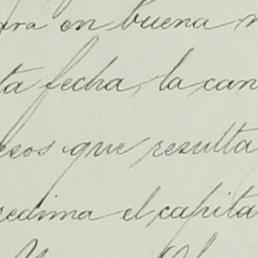 ara en buena m
ta fecha, la can
esos que resulta
redima el capita